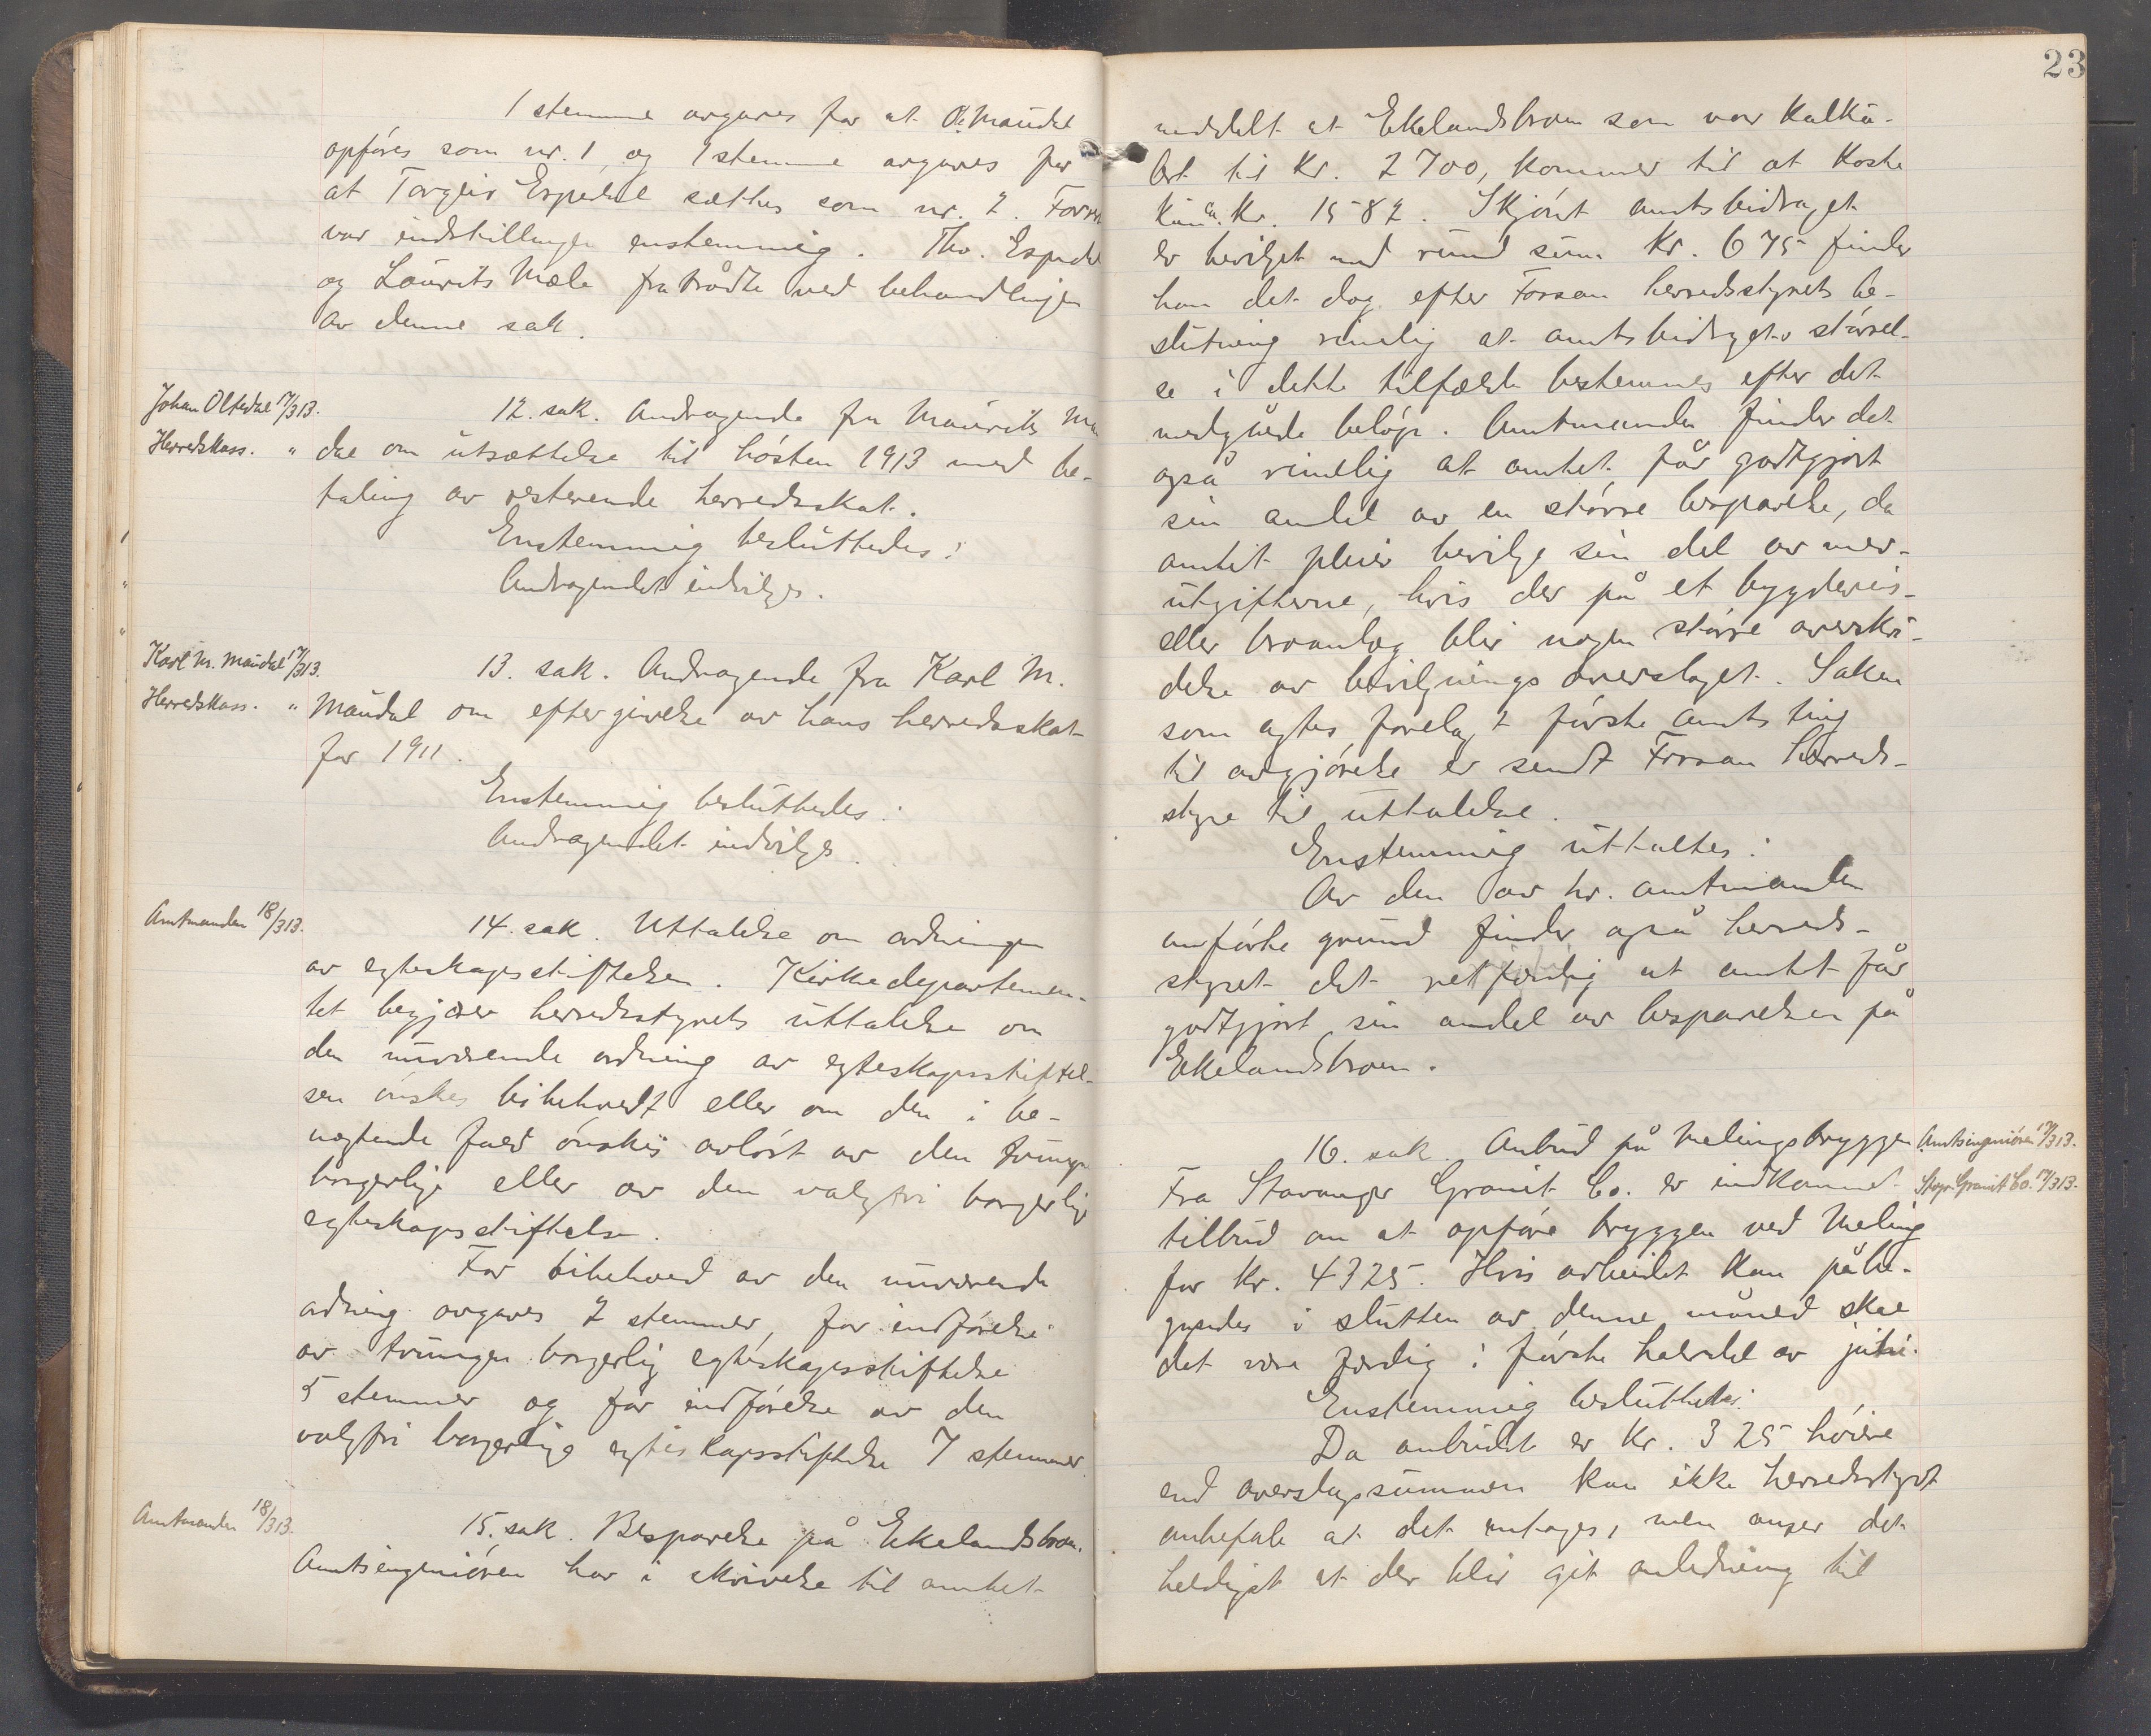 1 stemme avgaves for at O. Maudal
opføres som nr. 1, og 1 stemme avgaves for
at Torgeir Espedal sættes som nr. 2. Forøv
var indstillingen enstemmig. Tho. Espedal
og Laurits Mæle fratrådte ved behandlingen
av denne sak.
Johan Oltedal 17/3 13.
Herredskass. "
12. sak. Andragende fra Maurits Mau
dal om utsættelse til høsten 1913 med be-
taling av resterende herredsskat.
Enstemmig besluttedes:
Andragendet indvilges.
Karl M. Maudal 17/3 13.
Herredskass. "
13. sak. Andragende fra Karl M.
Maudal om eftergivelse av hans herredsskat
for 1911.
Enstemmig besluttedes:
Andragendet indvilges.
Amtmanden 18/3 13.
14. sak. Uttalelse om ordningen
av egteskapsstiftelsen. Kirkedepartemen-
tet begjærer herredsstyrets uttalelse om
den nuværende ordning av egteskapsstiftel-
sen ønskes bibeholdt eller om den i be-
nægtende fald ønskes avløst av den tvungne
borgerlige eller av den valgfri borgerlige
egteskapsstiftelse.
For bibehold av den nuværende
ordning avgaves 2 stemmer, for indførelse
av tvungen borgerlig egteskapsstiftelse
5 stemmer og for indførelse av den
valgfri borgerlige egteskapsstiftelse 7 stemmer.
Amtmanden 18/3 13.
15. sak. Besparelse på Ekelandsbroen.
Amtsingeniøren har i skrivelse til amtet
23
meddelt at Ekelandsbroen som var kalku-
lert til kr. 2700, kommer til at koste
kun ca. kr. 1582. Skjønt amtsbidraget
er bevilget med rund sum kr. 675 finder
han det dog efter Forsan herredsstyrets be-
slutning rimelig at amtsbidragets størrel-
se i dette tilfælde bestemmes efter det
medgåede beløp. Amtmanden finder det
også rimelig at amtet får godtgjort
sin andel av en større besparelse, da
amtet pleier bevilge sin del av mer-
utgifterne, hvis der på et bygdeveis-
eller broanlæg blir nogen større overskri-
delse av bevilgningsoverslaget. Saken
som agtes forelagt første amtsting
til avgjørelse er sendt Forsan herreds-
styre til uttalelse.
Enstemmig uttaltes:
Av den av hr. amtmanden
anførte grund finder også herreds-
styret det retfærdig at amtet får
godtgjort sin andel av besparelsen på
Ekelandsbroen.
Amtsingeniøren 17/3 13.
Stvgr. Granit Co. 17/3 13.
16. sak. Anbud på Melingsbryggen
Fra Stavanger Granit Co. er indkommet
tilbud om at opføre bryggen ved Meling
for kr. 4325. Hvis arbeidet kan påbe-
gyndes i slutten av denne måned skal
det være færdig i første halvdel av juli.
Enstemmig besluttedes:
Da anbudet er kr. 325 høiere
end overslagssummen kan ikke herredsstyret
anbefale at det antages, men anser det
heldigst at der blir git anledning til